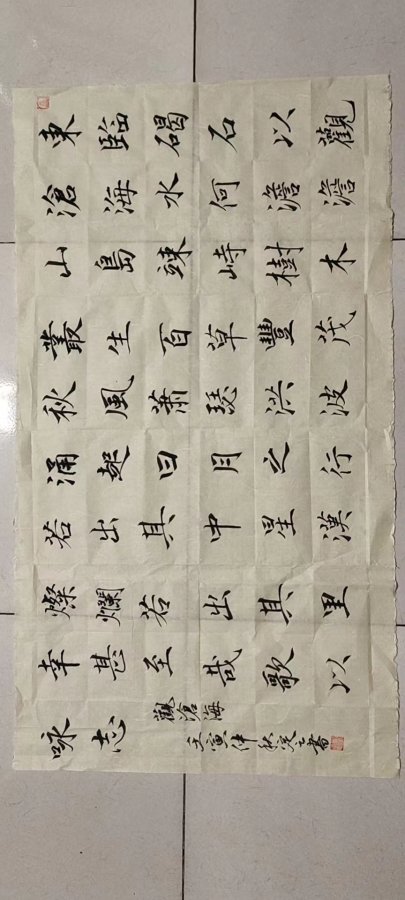 東臨碣石以觀
滄海水何澹澹
山島竦峙樹木
叢生百草豐茂
秋風蕭瑟洪波
涌起日月之行
若出其中星漢
燦爛若出其里
幸甚至哉歌以
咏志
觀滄海
壬寅仲秋書